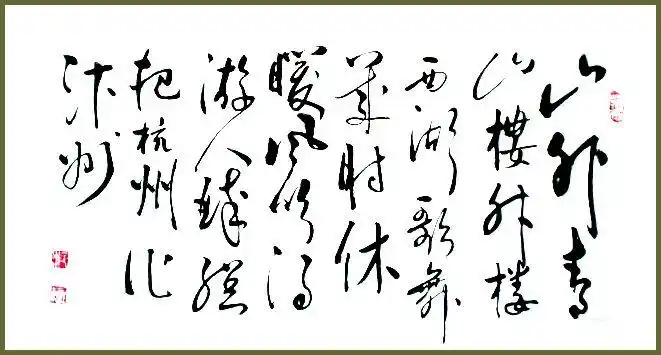 山外青
山樓外楼
西湖歌舞
幾时休
暖风吹得
游人醉
把杭州作
汴州